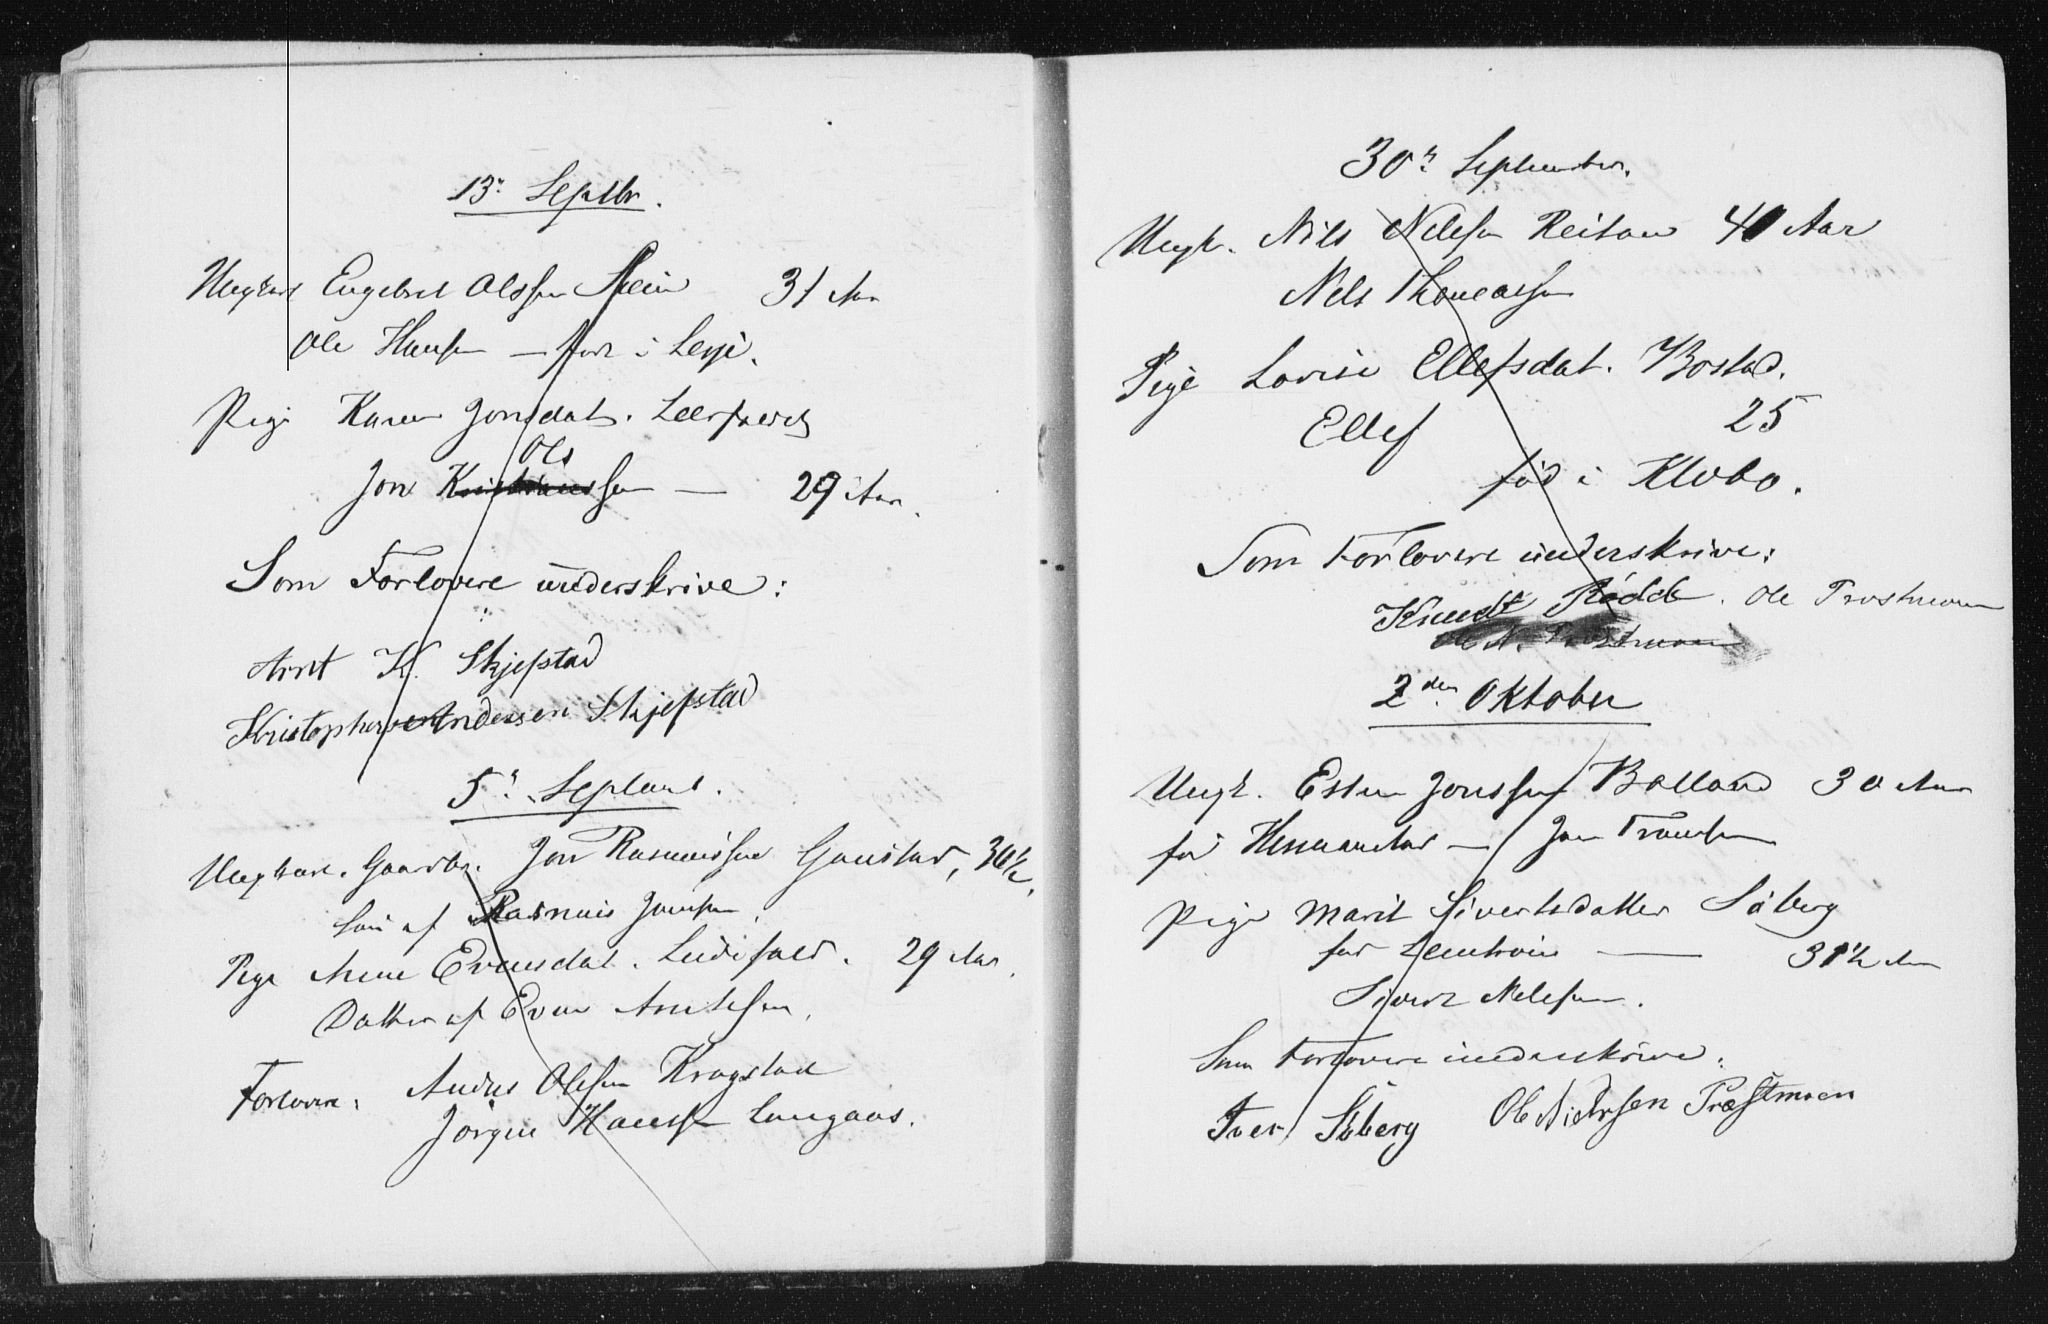 13. Septbr.
Ungkarl Engebret Olssen Stein 31 Aar
Ole Hansen — født i Lesje.
Pige Karen Jonsdat.
Ols
Jon Kristianssen — 29 Aar.
Som Forlovere underskrive:
Arnt K. Skjefstad
Kristopher Andersen Skjefstad
5. Septemb.
Ungkarl. Gaardbr. Jon Rasmussen Gaustad, 30½.
Søn af Rasmus Jonsen.
Pige Anne Evensdat. 29 Aar.
Datter af Even Arntsen.
Forlovere: Anders Olsen Krogstad
Jörgen Hansen Langaas.
30. September.
Ungk. Nils Nilsen Reitan 40 Aar
Nils Thomassen
Pige Lovise Ellefsdat. Bostad.
Ellef 25
fød i Klæbo.
Som Forlovere underskrive:
Knudt Rödde. Ole Prestmoen
Ole N. Prestmoen
2den Oktober
Ungk. Esten Jonssen Balland 30 Aar
Jon
Pige Marit Sivertsdatter Söberg
31½ Aar
Sivert Nilsen.
Som Forlovere underskrive:
Iver Söberg Ole Nielsen Præstmoen